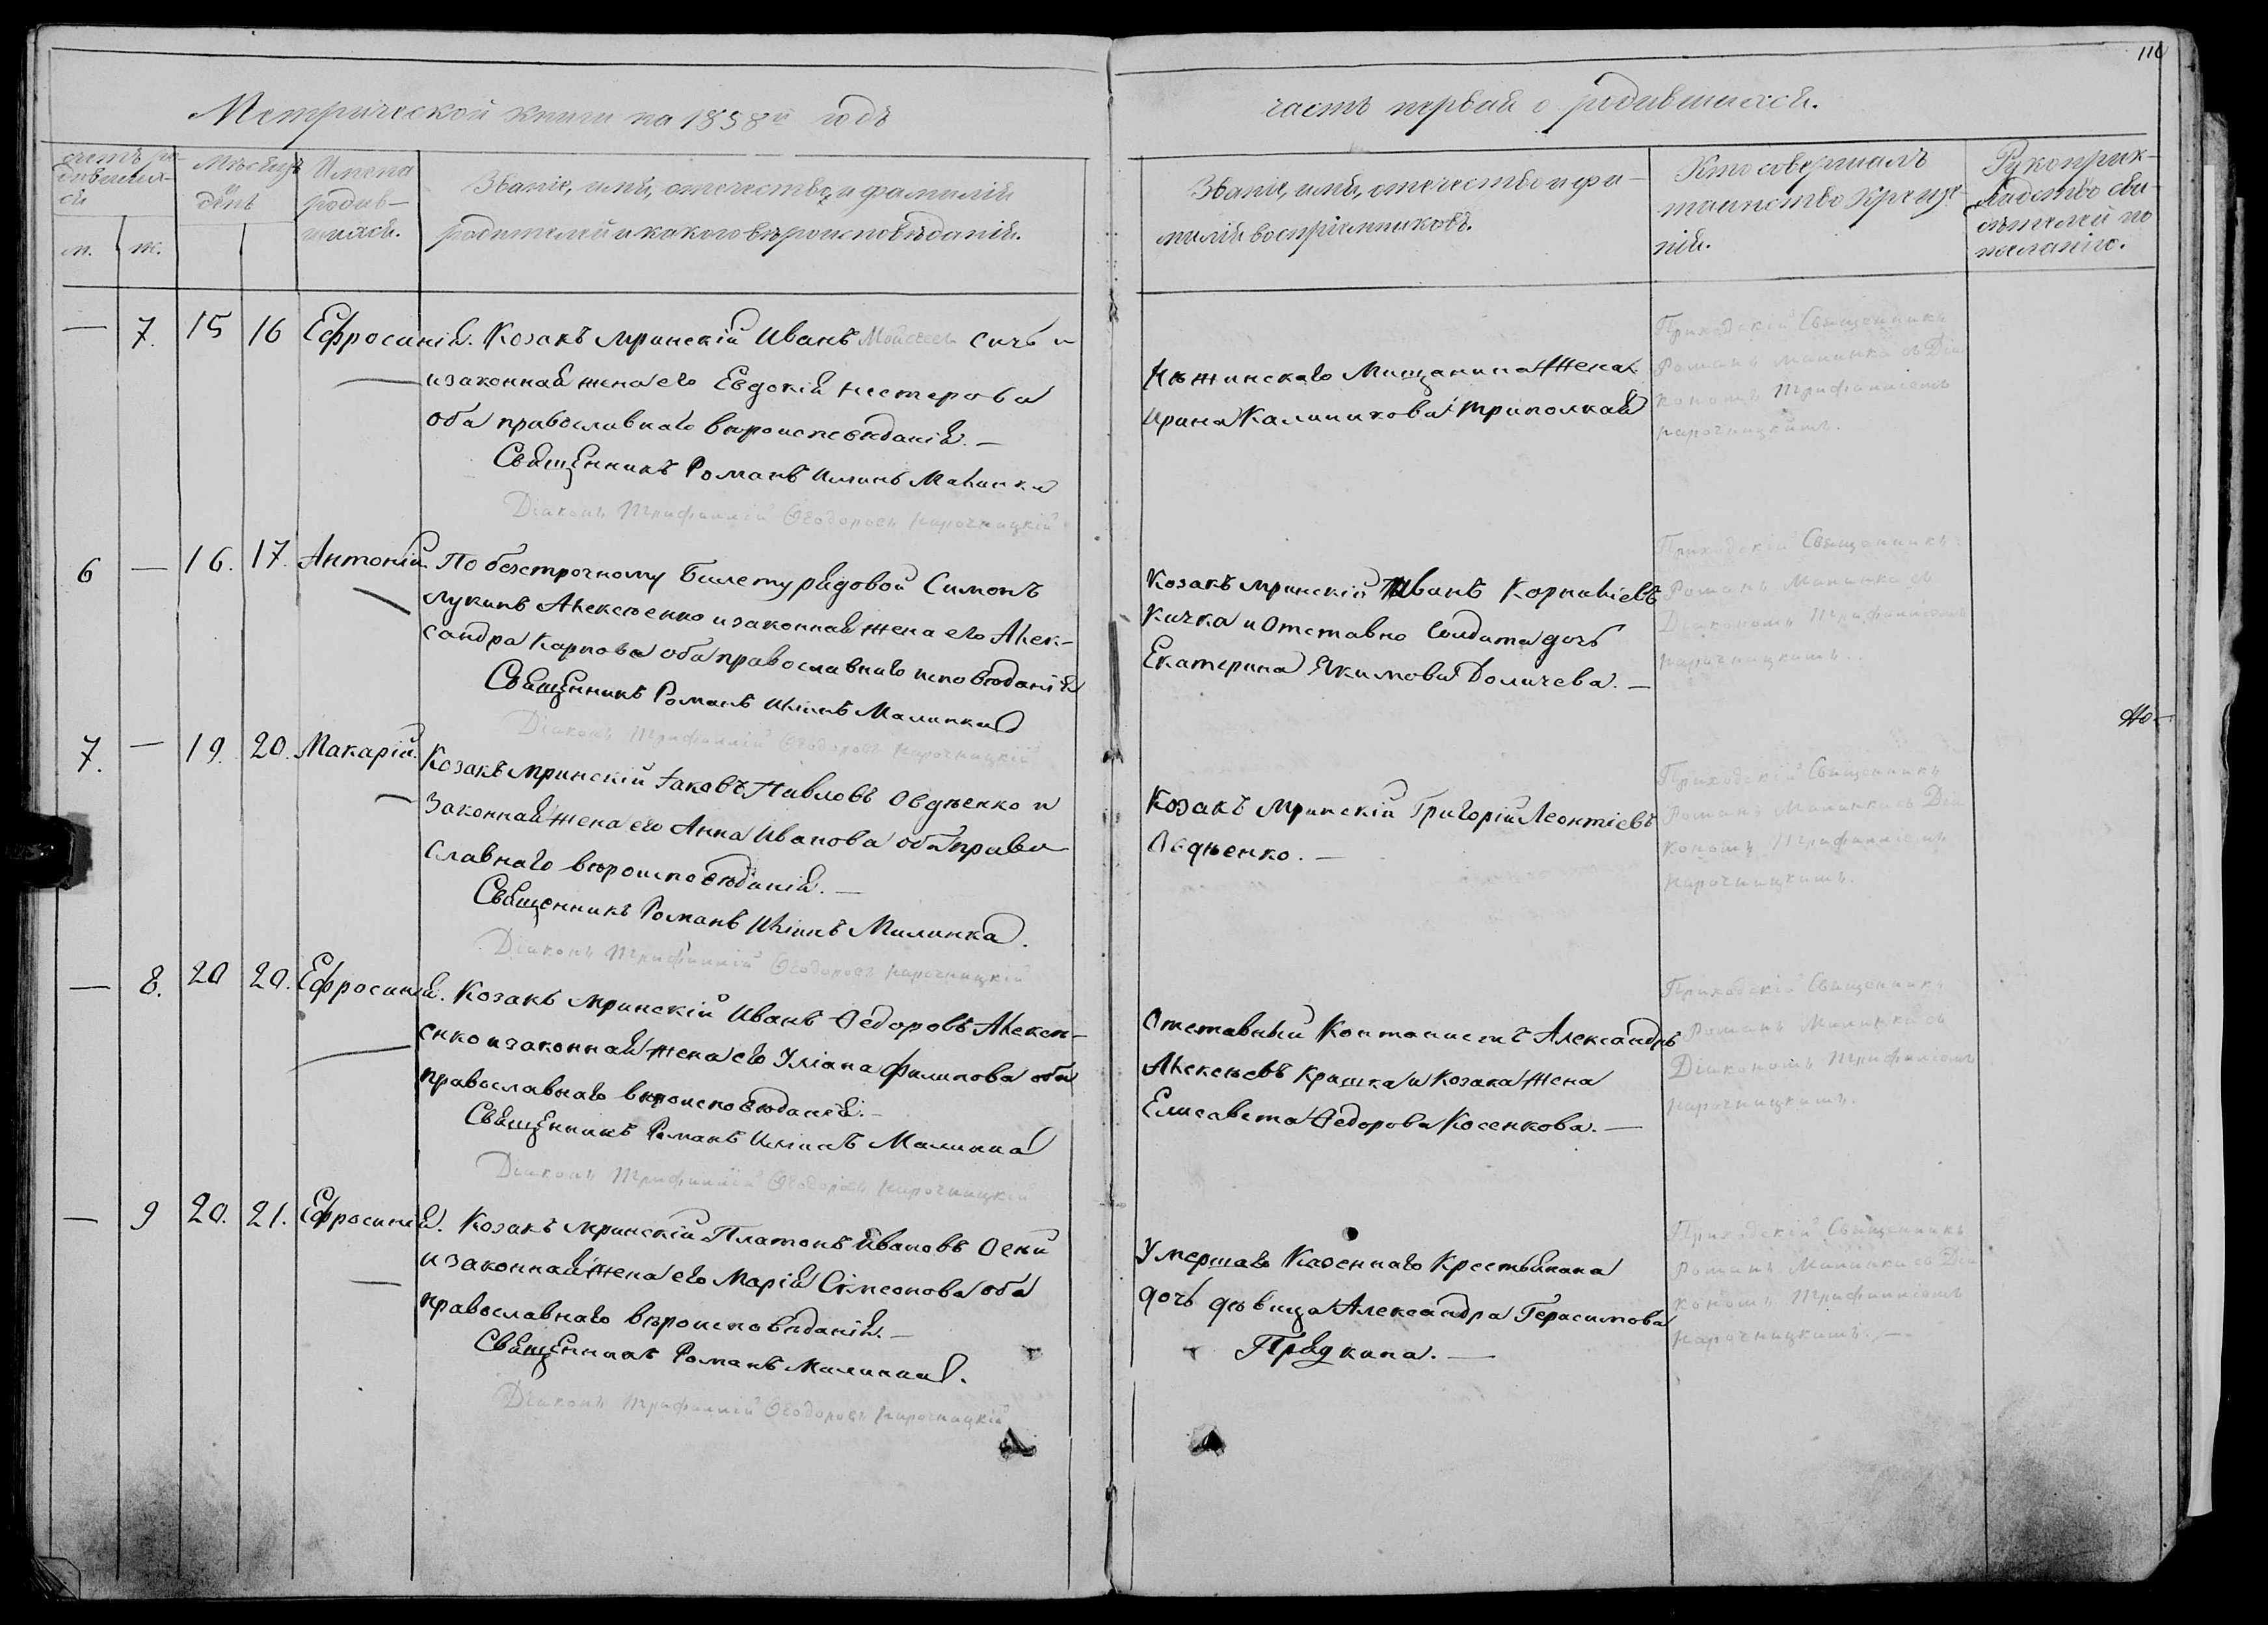 110
Метрической книги на 1858й годъ
часть первая о родившихся.
счетъ ро-
дивших-
ся
м.
ж.
Мѣсяцъ
и
день
Имена
родив-
шихся.
Званіе, имя, отечество, и фамилія
родителей и какого вѣроисповѣданія.
Званіе, имя, отечество и фа-
милія воспріемниковъ.
Кто совершалъ
таинство Креще-
нія.
Рукоприк-
ладство сви-
дѣтелей по
желанію.
— 7. 15 16 Ефросинія. Козакъ Мринскій Иванъ Мойсеевъ Сичъ и
и законная жена его Евдокія Нестерова
оба православнаго вѣроисповѣданія. —
Священникъ Романъ Малинка
Діаконъ Трифиллій Ѳеодоровъ Нарочницкій
Нѣжинскаго Мищанина жена
Ирина Калиникова Триполкая
Приходскій Священникъ
Романъ Малинка съ Діа
кономъ Трифилліемъ
Нарочницкимъ.
6 — 16. 17. Антоній. По безстрочному Билету рядовой Симонъ
Лукинъ Алексѣенко и законная жена его Алек-
сандра Карпова оба православнаго исповѣданія
Священникъ Романъ Иліинъ Малинка
Діаконъ Трифиллій Ѳеодоровъ Нарочницкій
Козакъ Мринскій Иванъ Корниліевъ
Качка и Отставно Солдата дочь
Екатерина Якимова Доличева. —
Приходскій Священникъ
Романъ Малинка съ
Діакономъ Трифилліемъ
Нарочницкимъ.
7. — 19. 20. Макарій. Козакъ Мринскій Іаковъ Павловъ Овдѣенко и
Законная жена его Анна Иванова оба право
славнаго вѣроисповѣданія. —
Священникъ Романъ Иліинъ Малинка.
Діаконъ Трифиллій Ѳеодоровъ Нарочницкій
Козакъ Мринскій Григорій Леонтіевъ
Овдѣенко. —
Приходскій Священникъ
Романъ Малинка съ Діа
кономъ Трифилліемъ
Нарочницкимъ.
— 8. 20 20. Ефросинія. Козакъ Мринскій Иванъ Ѳедоровъ Алексѣ-
енко и законная жена его Уліана Филипова оба
православнаго вѣроисповѣданія. —
Священникъ Романъ Иліинъ Малинка
Діаконъ Трифиллій Ѳеодоровъ Нарочницкій
Отставный Коптопистъ Александръ
Алексѣевъ Крашка и Козака жена
Елисавета Ѳедорова Косенкова. —
Приходскій Священникъ
Романъ Малинка съ
Діакономъ Трифилліемъ
Нарочницкимъ.
— 9 20. 21. Ефросинія. Козакъ Мринскій Платонъ Ивановъ
и законная жена его Марія Сімеонова оба
православнаго вѣроисповѣданія. —
Священникъ Романъ Малинка.
Діаконъ Трифиллій Ѳеодоровъ Нарочницкій
Умершаго Казеннаго Крестьянина
дочь дѣвица Александра Герасимова
Прядкина. —
Приходскій Священникъ
Романъ Малинка съ Діа
кономъ Трифилліемъ
Нарочницкимъ. —